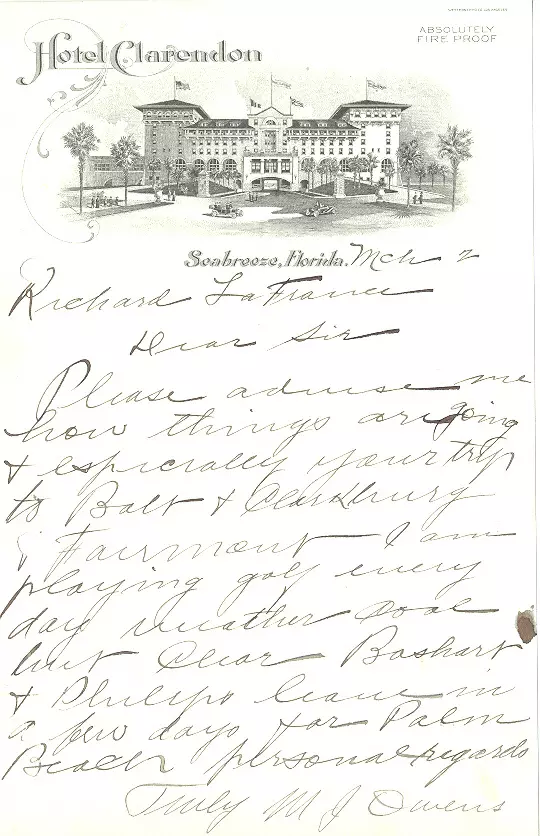 Hotel Clarendon
ABSOLUTELY
FIRE PROOF
Seabreeze, Florida. Mch 2
Richard LaFrance
Dear Sir
Please advise me
how things are going
& especially your trip
to Balt & Clarksburg
& Fairmont I am
playing golf every
day weather cool
but clear Boshart
& Philips leave in
a few days for Palm
Beach personal regards
Truly M J Owens